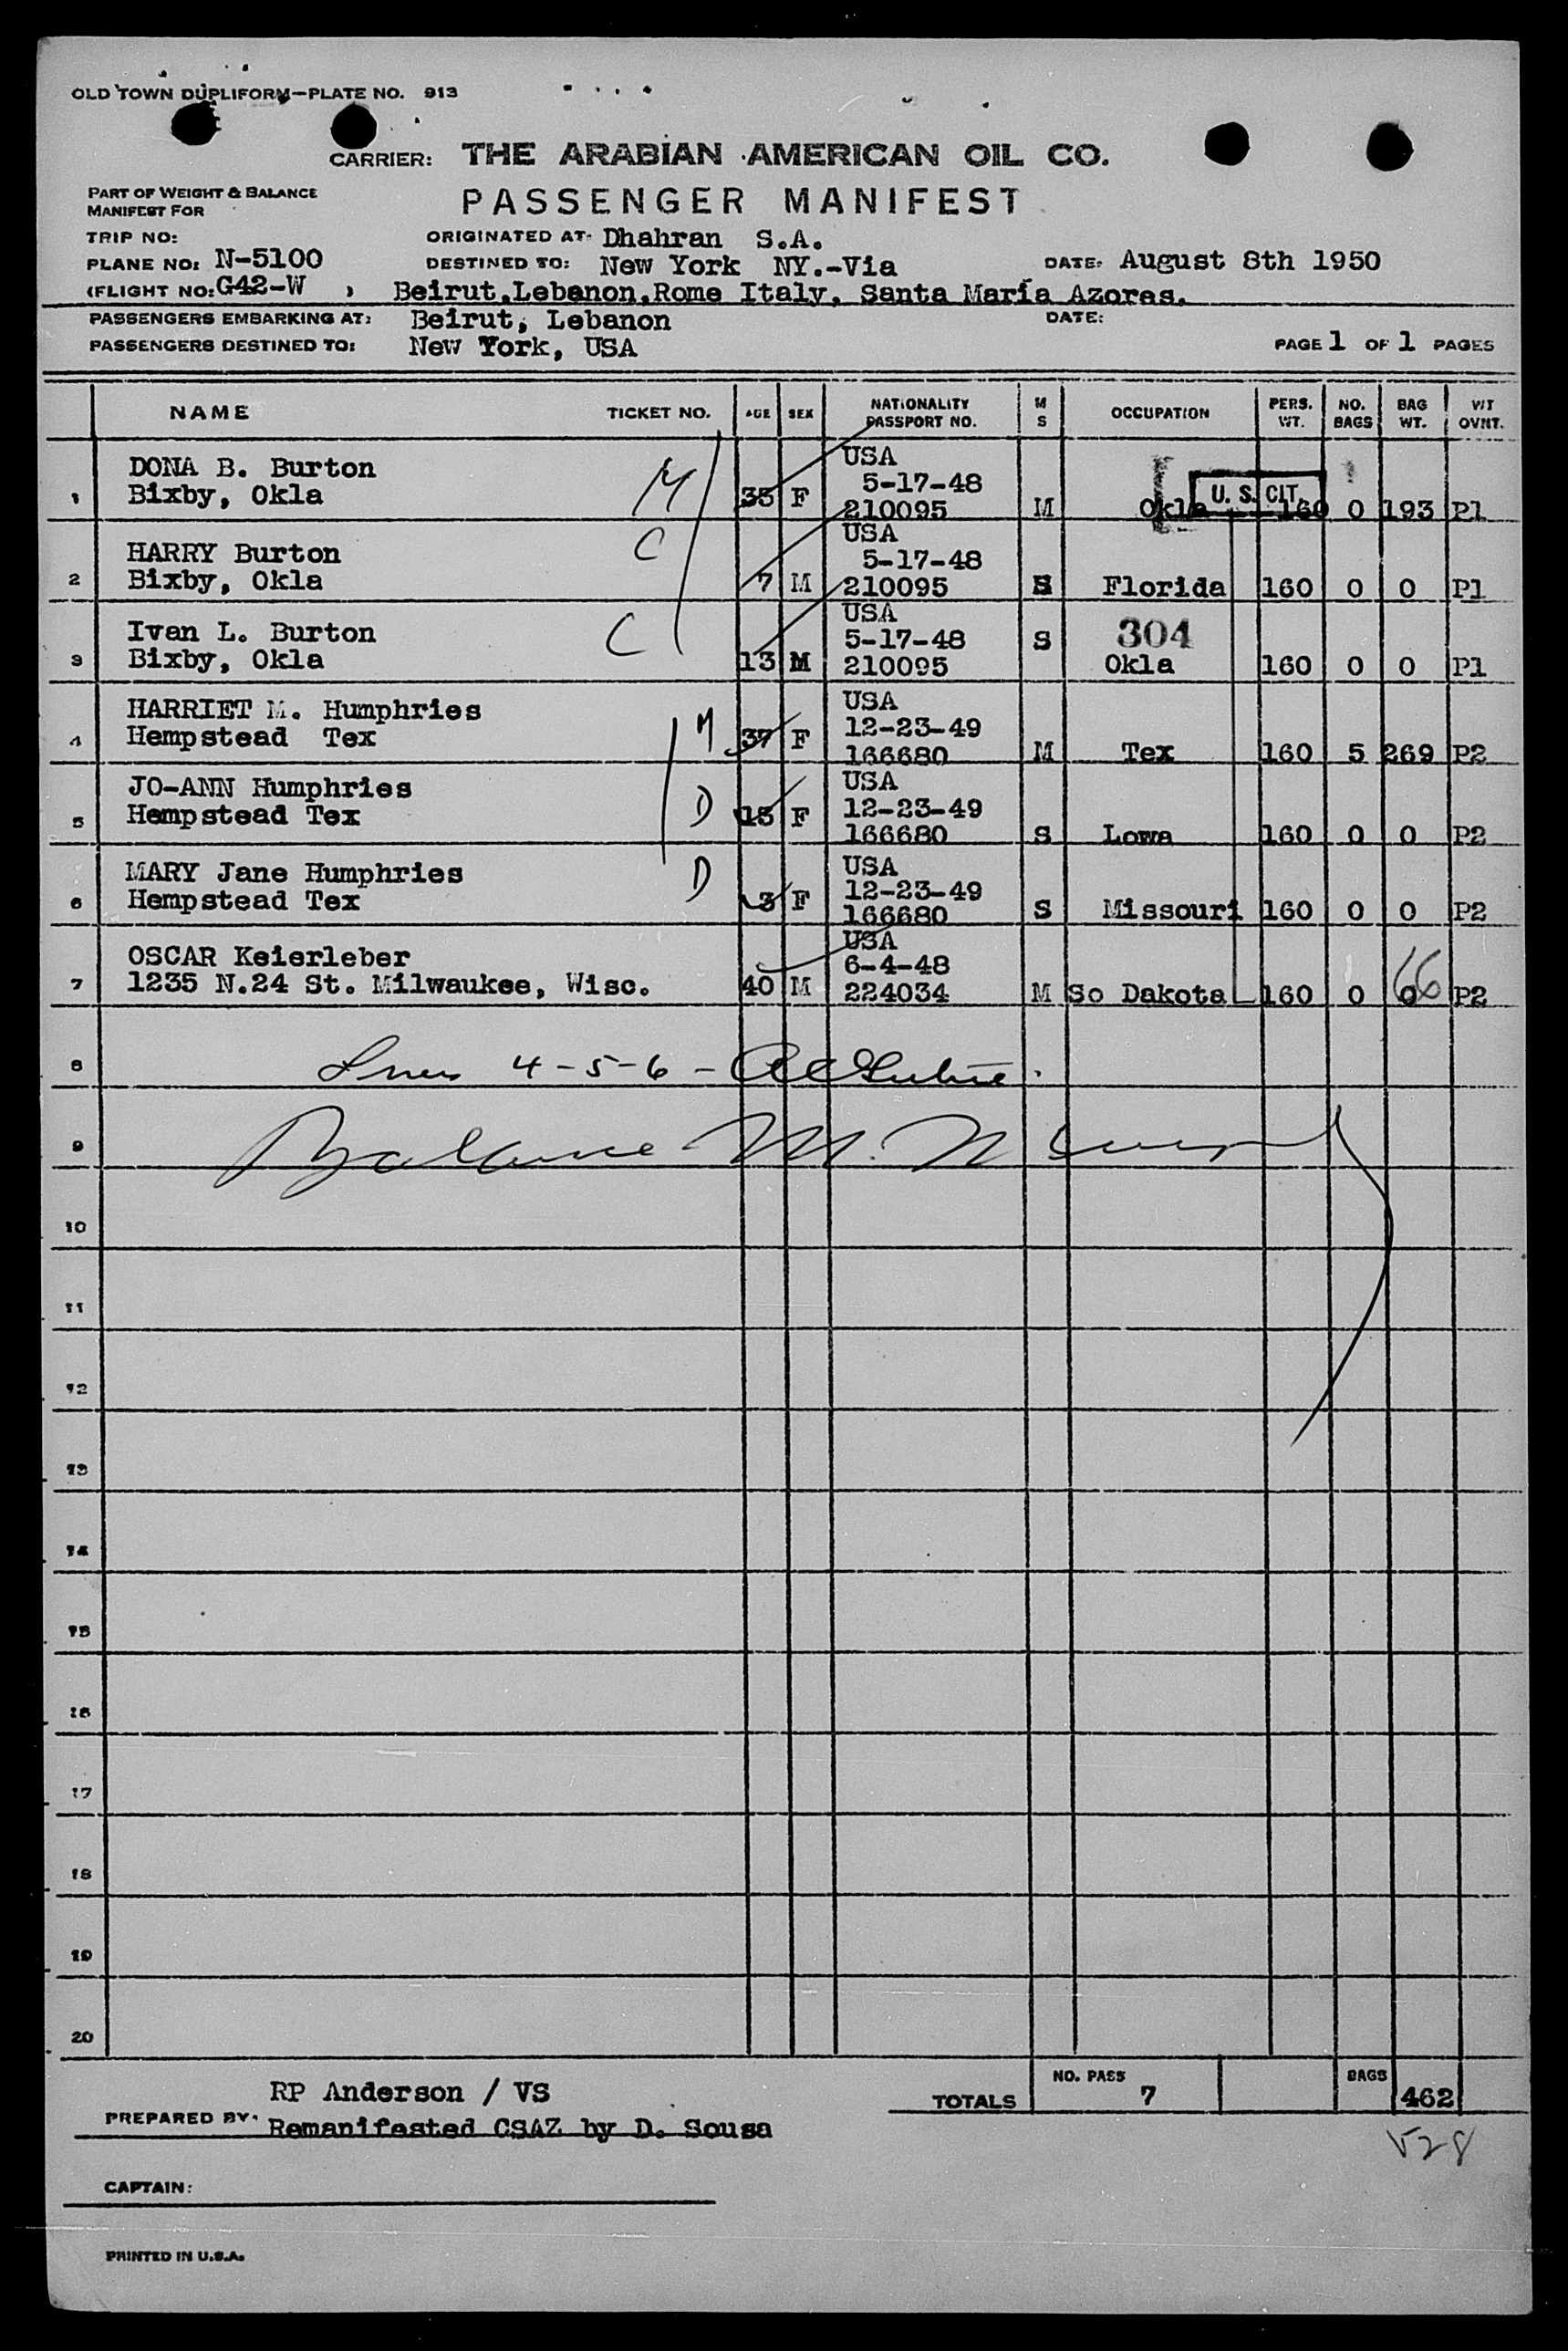 OLD TOWN DUPLIFORM—PLATE NO. 913
CARRIER: THE ARABIAN AMERICAN OIL CO.
PART OF WEIGHT & BALANCE
MANIFEST FOR
PASSENGER MANIFEST
TRIP NO:
ORIGINATED AT: Dhahran S.A.
PLANE NO: N-5100
DESTINED TO: New York NY.-Via
DATE: August 8th 1950
(FLIGHT NO: G42-W )
Beirut,Lebanon,Rome Italy, Santa Maria Azores.
PASSENGERS EMBARKING AT: Beirut, Lebanon
DATE:
PASSENGERS DESTINED TO: New York, USA
PAGE 1 OF 1 PAGES
NAME TICKET NO. AGE SEX NATIONALITY PASSPORT NO. M S OCCUPATION PERS. WT. NO. BAGS BAG WT. WT OVNT.
DONA B. Burton M USA U. S. CIT.
5-17-48
1 Bixby, Okla 35 F 210095 M Okla 160 0 193 P1
HARRY Burton C USA
5-17-48
2 Bixby, Okla 7 M 210095 S Florida 160 0 0 P1
Ivan L. Burton C USA
5-17-48 S 304
3 Bixby, Okla 13 M 210095 Okla 160 0 0 P1
HARRIET M. Humphries USA
Hempstead Tex M 12-23-49
4 37 F 166680 M Tex 160 5 269 P2
JO-ANN Humphries USA
Hempstead Tex D 12-23-49
5 15 F 166680 S Lowa 160 0 0 P2
MARY Jane Humphries D USA
Hempstead Tex 12-23-49
6 3 F 166680 S Missouri 160 0 0 P2
OSCAR Keierleber USA
6-4-48 66
7 1235 N.24 St. Milwaukee, Wisc. 40 M 224034 M So Dakota 160 0 0 P2
8 4-5-6 -
9 Balance
10
11
12
13
14
15
16
17
18
19
20
RP Anderson / VS
TOTALS NO. PASS 7 BAGS 462
PREPARED BY: Remanifested CSAZ by D. Sousa
528
CAPTAIN:
PRINTED IN U.S.A.